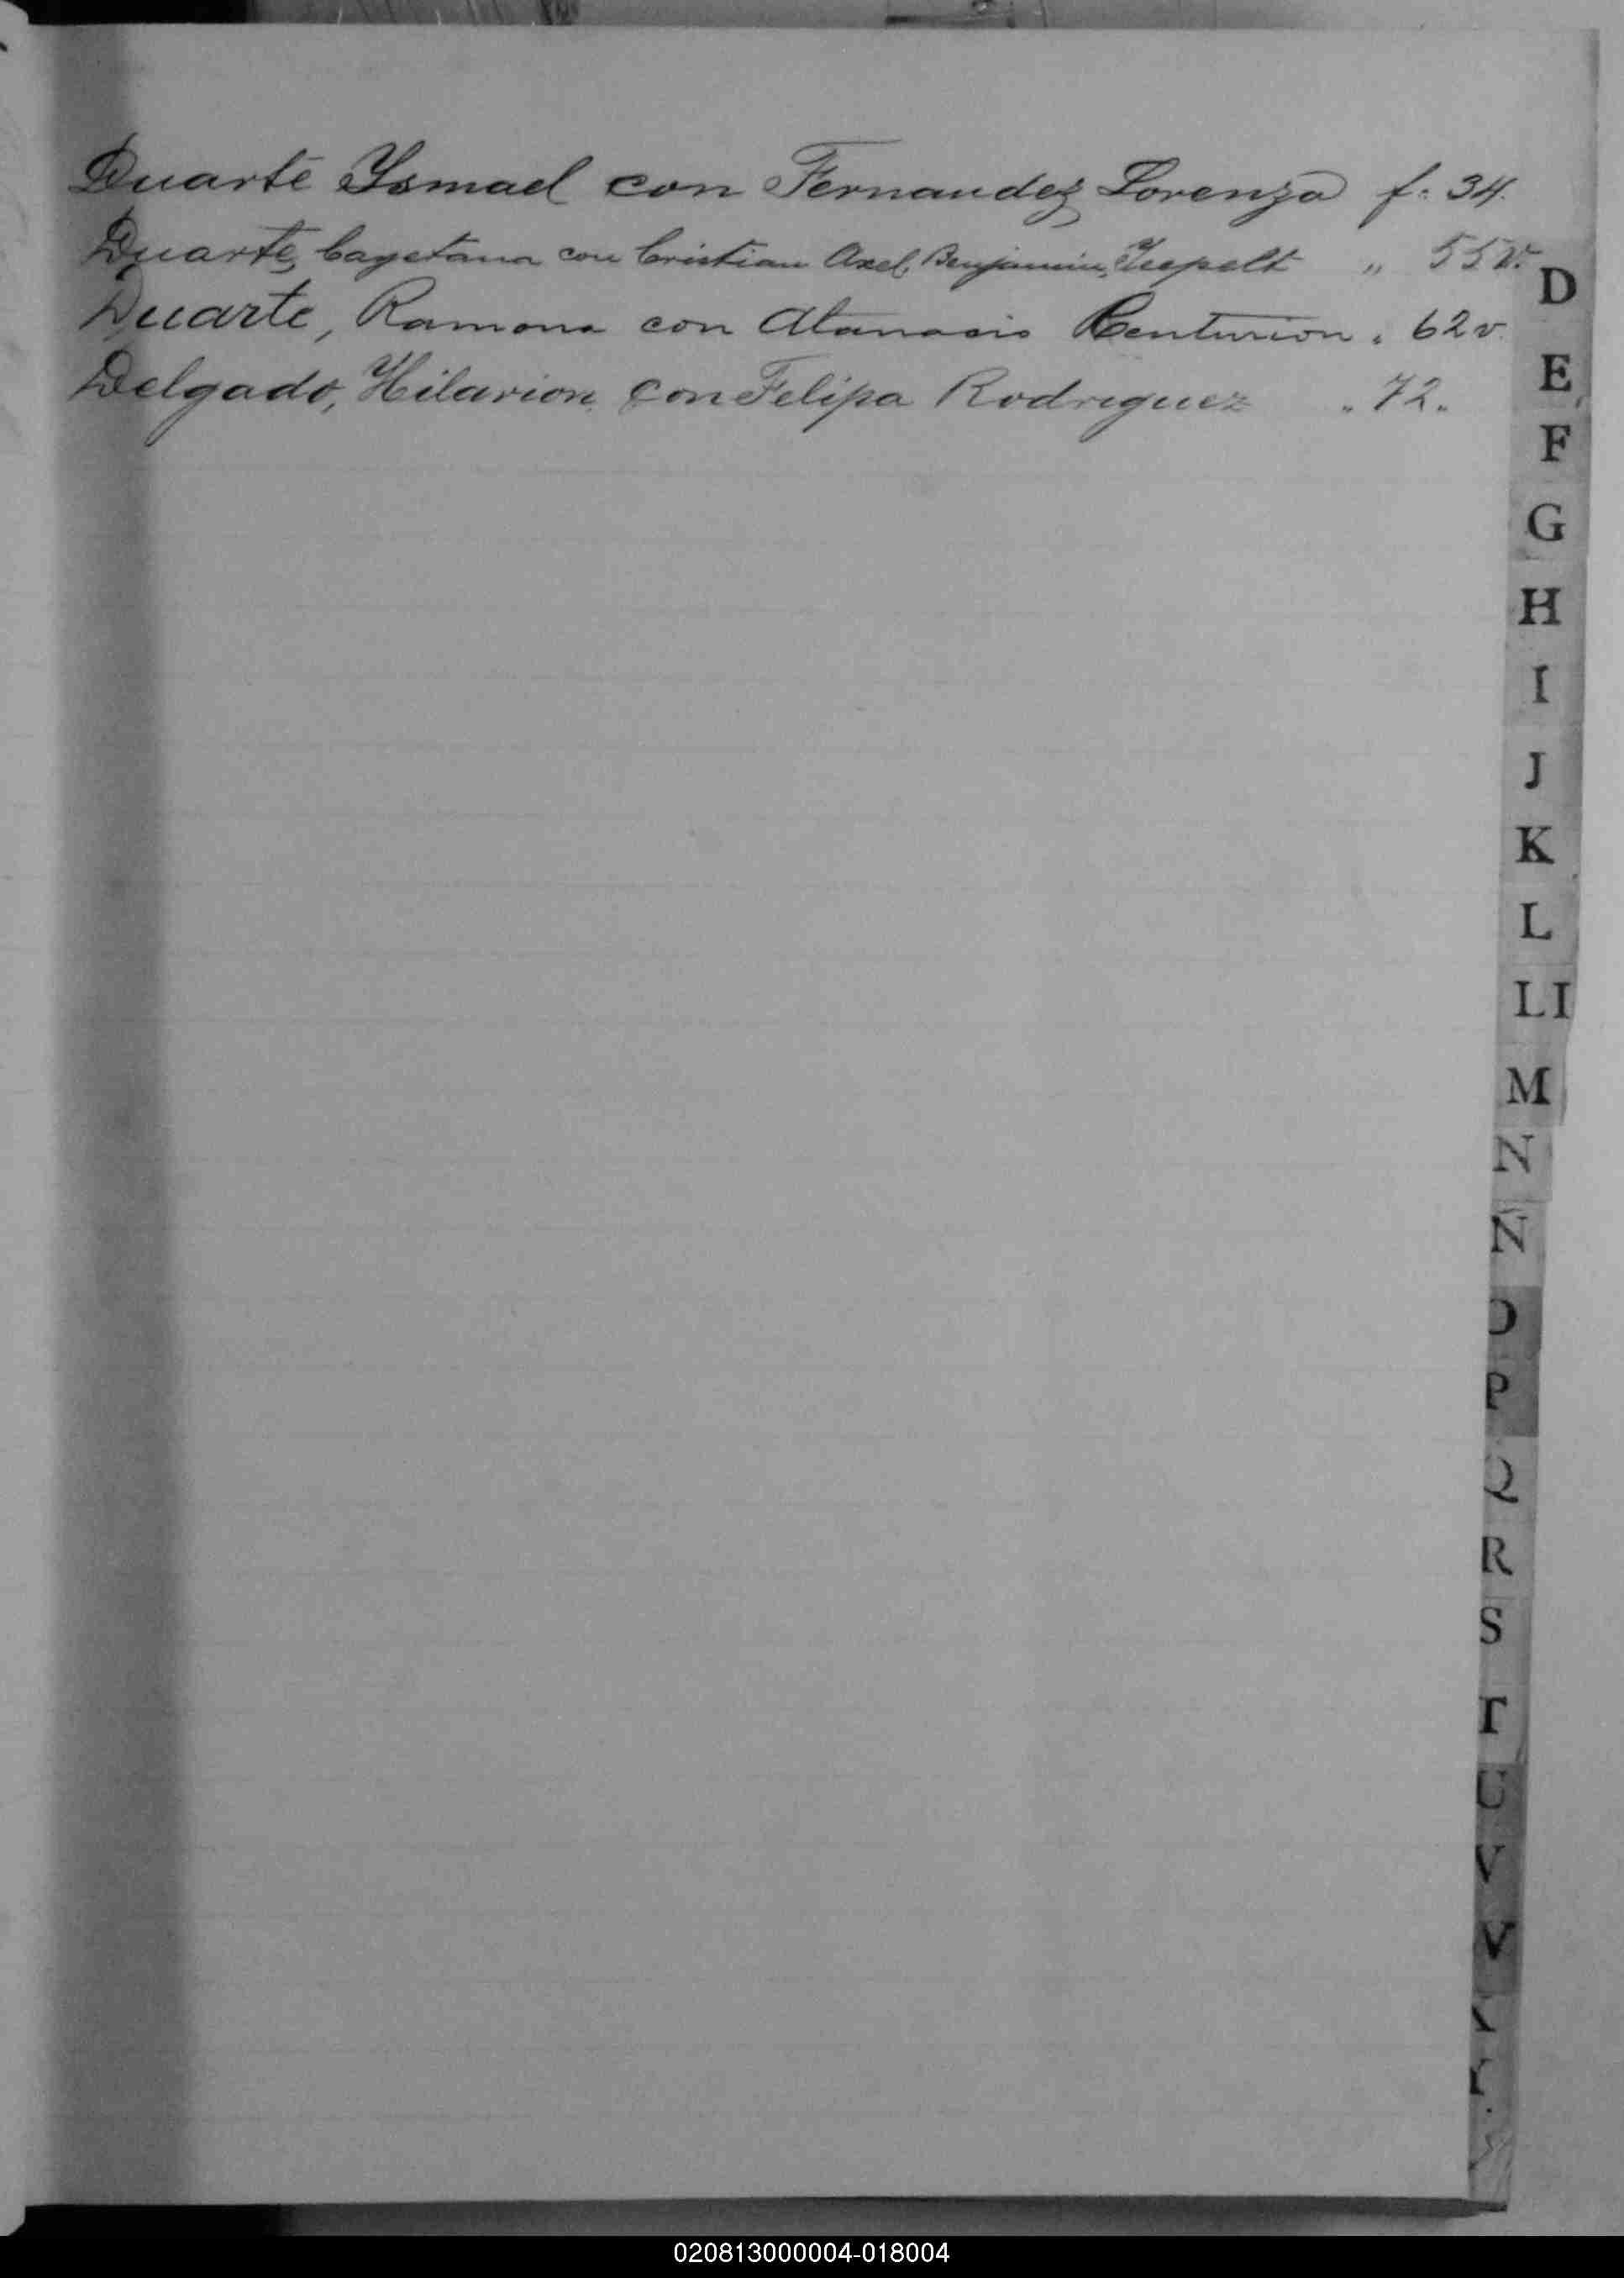 Duarte Ysmael con Fernandez Lorenza f: 34.
Duarte, Cayetana con Cristian Axel, Benjamin, „ 55v.
Duarte, Ramona con Atanasio Centurion „ 62v.
Delgado, Hilarion con Felipa Rodriguez „ 72„
D
E
F
G
H
I
J
K
L
LI
M
N
Ñ
O
P
Q
R
S
T
U
V
V
020813000004-018004